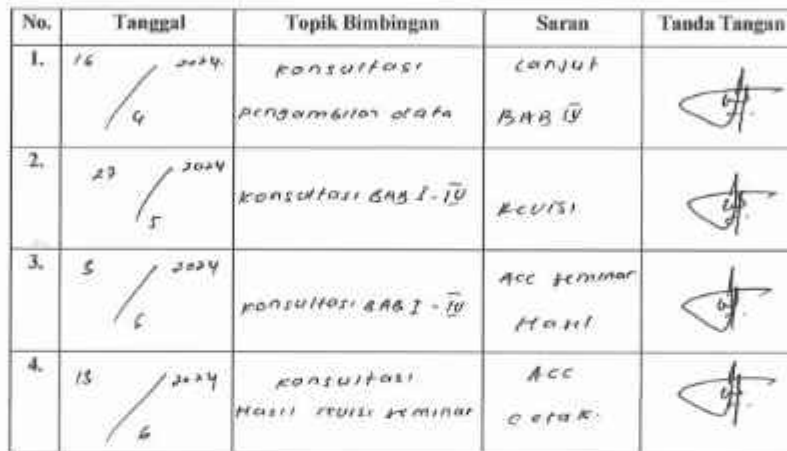 No. Tanggal Topik Bimbingan Saran Tanda Tangan
1. 16 / 4 2024 konsultasi pengambilan data Lanjut BAB IV
2. 27 / 5 2024 konsultasi BAB I - IV Revisi
3. 5 / 6 2024 konsultasi BAB I - IV Acc seminar Hasil
4. 13 / 6 2024 konsultasi Hasil revisi seminar Acc cetak.